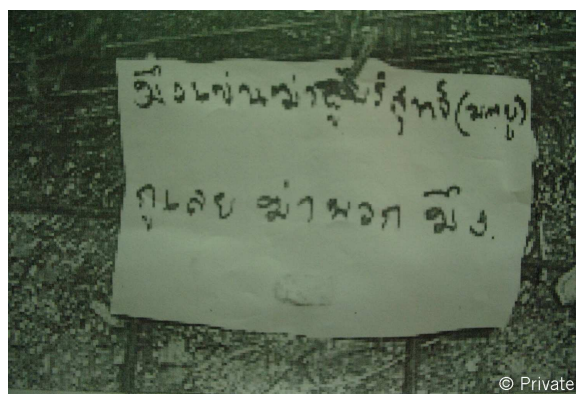 มึงเข่นฆ่าผู้บริสุทธิ์(มลายู)
กูเลย ฆ่าพวก มึง.
© Private